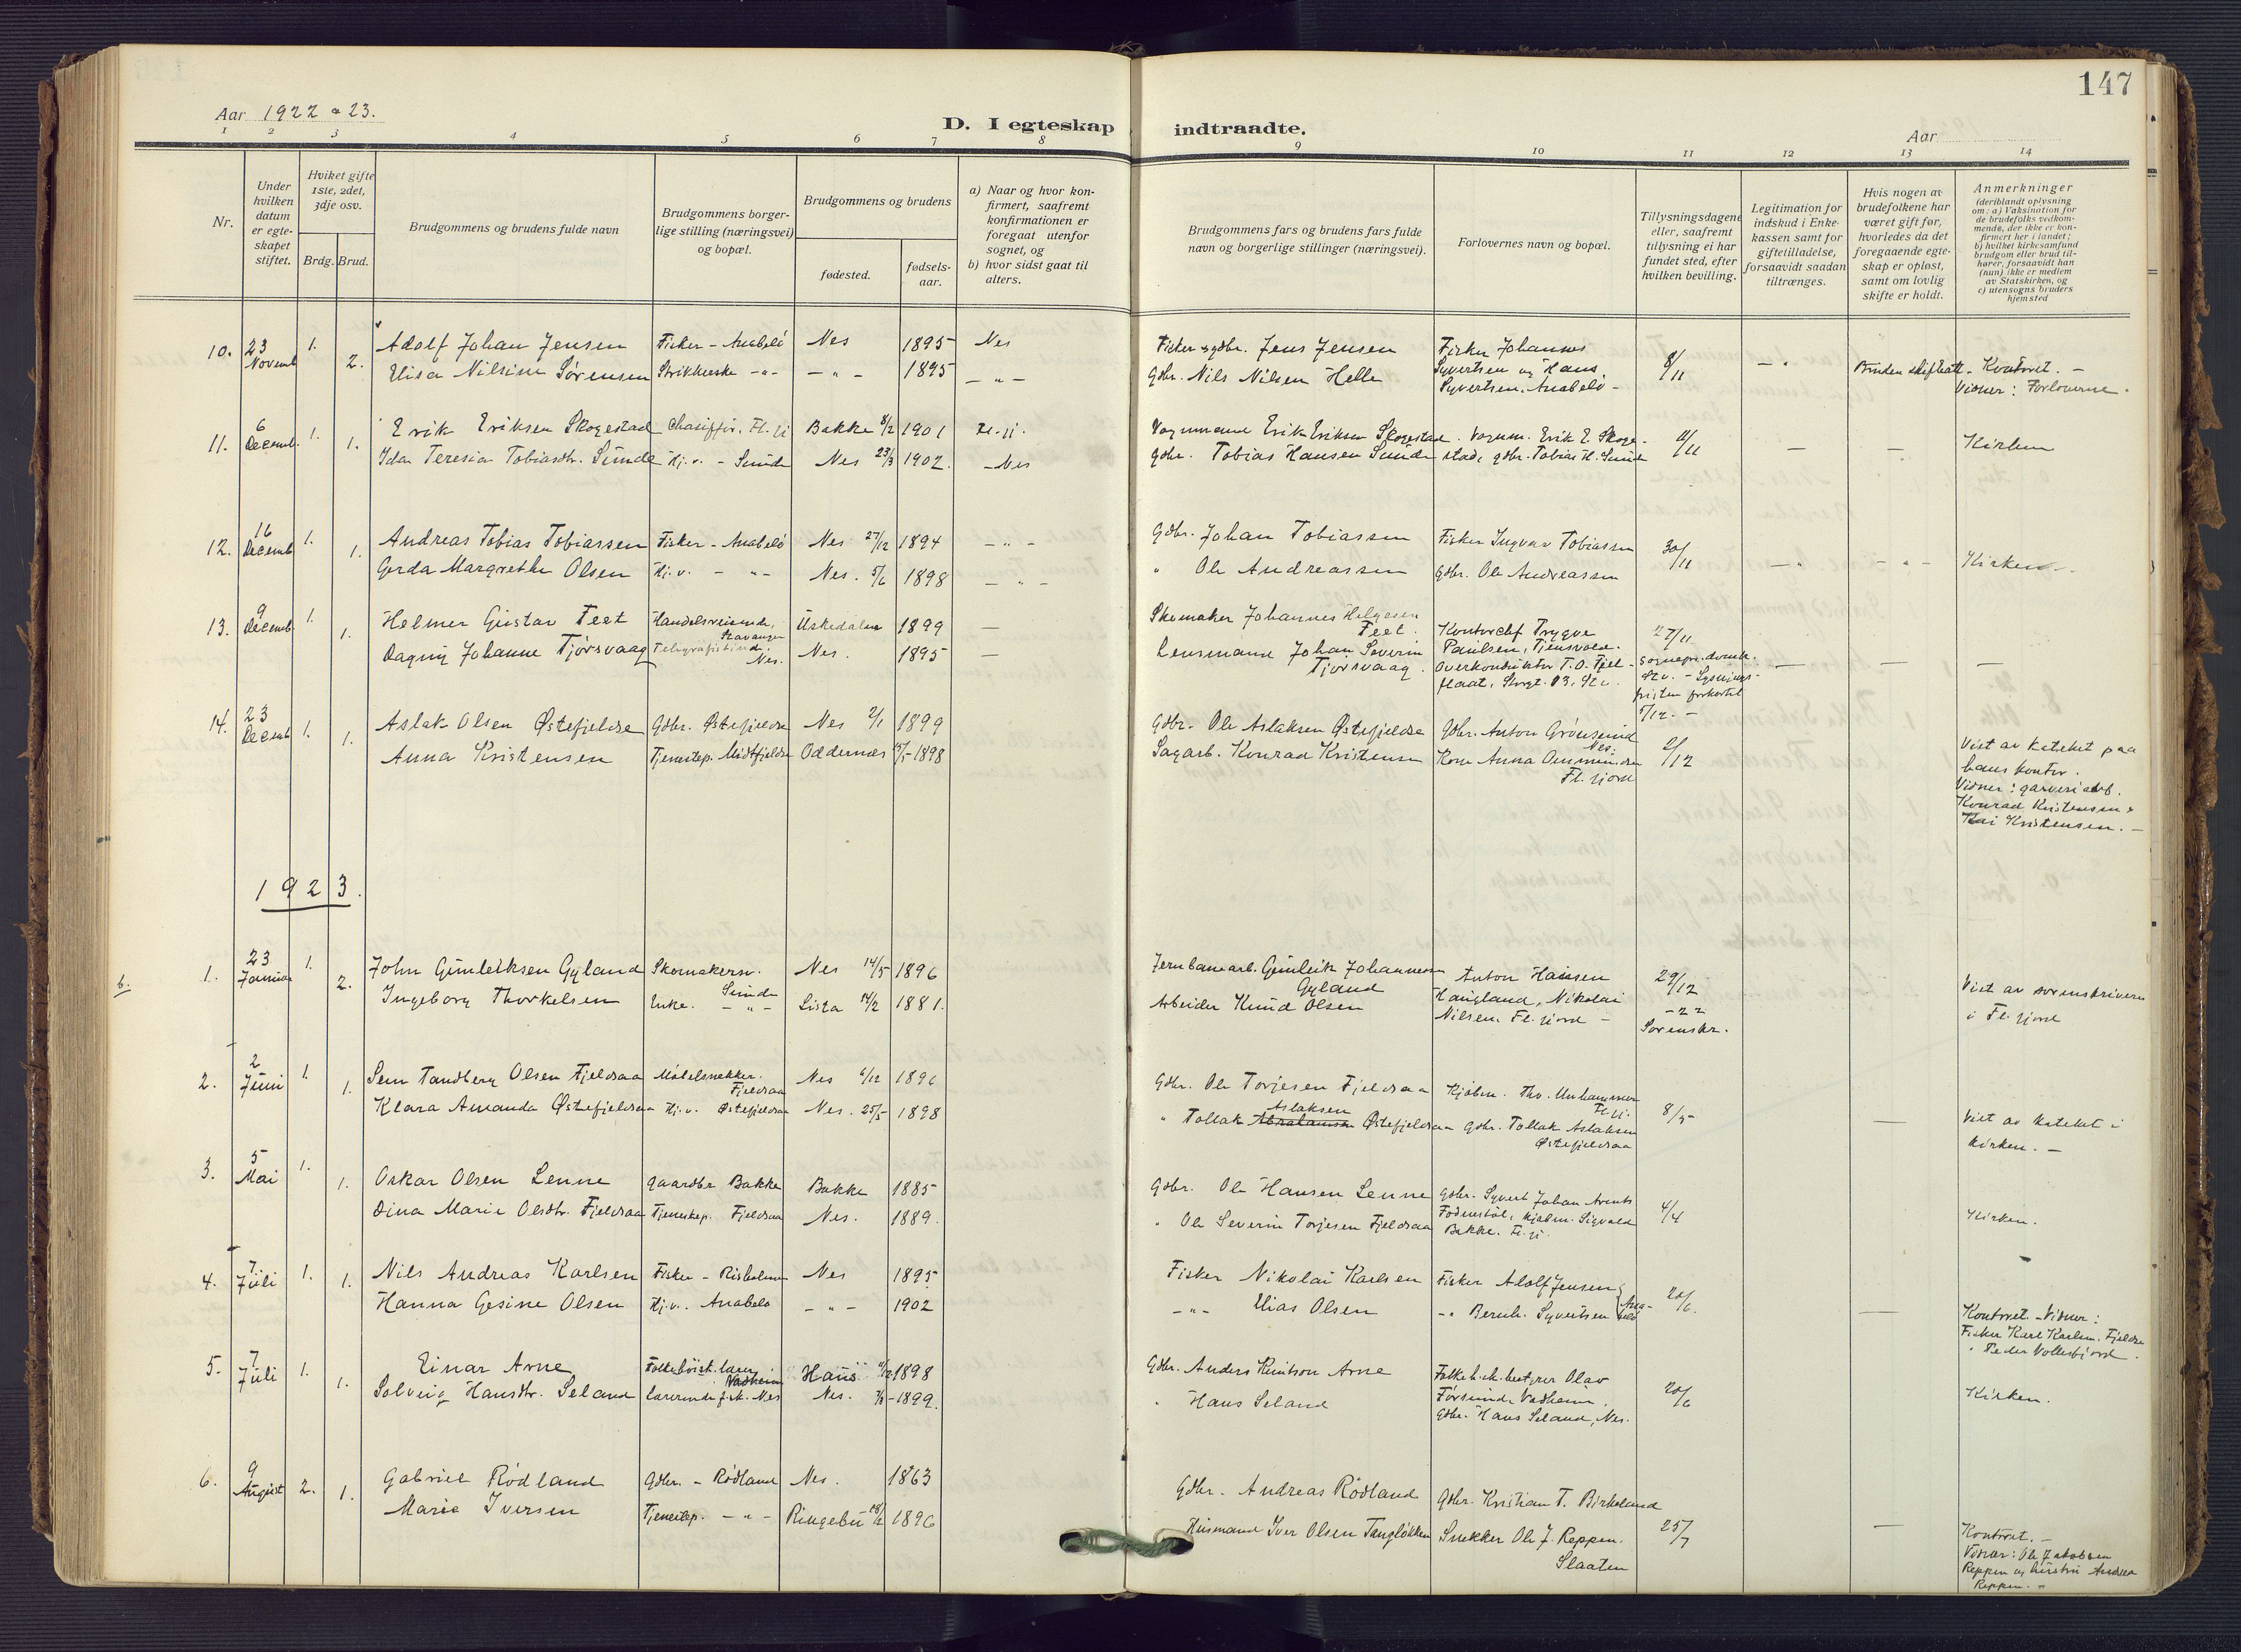 147
Aar 1922 o 23.
D. I egteskap indtraadte.
Aar
1 2 3 4 5 6 7 8 9 10 11 12 13 14
Nr.
Under hvilken datum er egteskapet stiftet.
Hvilket gifte 1ste, 2det, 3dje osv.
Brdg. Brud.
Brudgommens og brudens fulde navn
Brudgommens borgerlige stilling (næringsvei) og bopæl.
Brudgommens og brudens
fødested.
fødselsaar.
a) Naar og hvor konfirmert, saafremt konfirmationen er foregaat utenfor sognet, og
b) hvor sidst gaat til alters.
Brudgommens fars og brudens fars fulde navn og borgerlige stillinger (næringsvei).
Forlovernes navn og bopæl.
Tillysningsdagene eller, saafremt tillysning ei har fundet sted, efter hvilken bevilling.
Legitimation for indskud i Enkekassen samt for giftetilladelse, forsaavidt saadan tiltrænges.
Hvis nogen av brudefolkene har været gift før, hvorledes da det foregaaende egteskap er opløst, samt om lovlig skifte er holdt.
Anmerkninger (deriblandt oplysning om: a) Vaksination for de brudefolks vedkommende, der ikke er konfirmert her i landet; b) hvilket kirkesamfund brudgom eller brud tilhører, forsaavidt han (hun) ikke er medlem av Statskirken, og c) utensogns bruders hjemsted
10. 23 Novemb 1. Adolf Johan Jensen Fisker - Anabelö Nes 1895 Nes Fisker & gdbr. Jens Jensen Fisker Johannes
2. Elisa Nilsine Sörensen Strikkerske - " - - " - 1895 - " - Gdbr. Nils Nilsen Helle Syvertsen og Hans Syvertsen, Anabelö - 8/11 Bruden skifteatt. - Kontoret. - Vidner: Forloverne.
11. 6 Decemb. 1. Erik Eriksen Skogestad Chauffør, Fl. fj Bakke 8/2 1901 Fl. fj. Vognmand Erik Eriksen Skogestad. Vognm. Erik E. Skoge-
1. Ida Teresia Tobiasdtr. Sunde Hj. v. - Sunde Nes 23/3 1902. - Nes gdbr. Tobias Hansen Sunde stad, gdbr. Tobias H. Sunde 11/11 - - Kirken
12. 16 Decemb 1. Andreas Tobias Tobiassen Fisker - Anabelö Nes 27/12 1894 - " - Gdbr. Johan Tobiassen Fisker Ingvar Tobiassen
1. Gerda Margrethe Olsen Hj. v. - " - Nes. 5/6 1898 - " - " Ole Andreassen Gdbr. Ole Andreassen 30/11 - " - Kirken -
13. 9 Decemb. 1. Helmer Gustav Feet Handelsreisende, Stavanger Uskedalen 1899 - Skomaker Johannes Helgesen Feet. Kontorchef Trygve
1. Dagny Johanne Tjörsvaag Telegrafistinde, Nes. Nes. 1895 - Lensmand Johan Severin Tjörsvaag. Paulsen, Tjensvold. Overkonduktör T. O. Fjelflaat, 27/11 Lysningsfristen forkortet 5/12. - - - -
14. 23 Decemb 1. Aslak Olsen Østefjeldsa Gdbr. Østefjeldsa Nes 2/1 1899 Gdbr. Ole Aslaksen Østefjeldsa Gdbr. Anton Grönsund Nes.
1. Anna Kristensen Tjenestep. Midtfjeldsa Oddernes 1898 Sagarb. Konrad Kristensen Kone Anna Omundsen Fl. fjord 2/12 Viet av kateket paa hans kontor. Vidner: garveriarb. Konrad Kristensen & Kai Kristensen. -
1923.
b. 1. 23 Januar 1. John Gunleiksen Gyland Skomakersv. Sunde Nes 14/5 1896 Jernbanearb. Gunleik Johannessen Gyland Anton Hansen
2. Ingeborg Thorkelsen Enke. - " - Lista 14/2 1881. Arbeider Knud Olsen Haugland, Nikolai Nilsen, Fl. fjord - 29/12 - 22 Sorenskr. Viet av sorenskriveren i Fl. fjord
2. 2 Juni 1. Sem Tandberg Olsen Fjeldsaa Möbelsnekker. Fjeldsaa Nes 6/12 1896 Gdbr. Ole Torjesen Fjeldsaa Kjøbm. Thv. Unhammer Fl. fj.
1. Klara Amanda Østefjeldsaa Hj. v. Østefjeldsaa Nes. 25/5 1898 " Tollak Abrahamsen Aslaksen Østefjeldsaa gdbr. Tollak Aslaksen Østefjeldsaa 8/5 - Viet av kateket i kirken. -
3. 5 Mai 1. Oskar Olsen Lenne gaardbr Bakke Bakke 1885 Gdbr. Ole Hansen Lenne Gdbr. Syvert Johan
1. Dina Marie Olsdtr. Fjeldsaa Tjenestep. Fjeldsaa Nes. 1889. " Ole Severin Torjesen Fjeldsaa kjøbm. Sigvald Bakke. Fl. fj. 4/4 Kirken.
4. 7. Juli 1. Nils Andreas Karlsen Fisker - Risholmen Nes 1895 Fisker Nikolai Karlsen Fisker Adolf Jensen
1. Hanna Gesine Olsen Hj. v. Anabelö - " - 1902 - " - Elias Olsen - " Bernh. Syvertsen Anabelö 20/6. - Kontoret. - Vidner: Fisker Karl Karlsen, Fjeldsa " Peder Vollesfjord.
5. 7 Juli 1. Einar Arne Folkehöisk. lærer Vadheim Haus 1898 Gdbr. Anders Knutson Arne Folkeh. sk. bestyrer Olav
1. Solveig Hansdtr. Seland lærerinde f. sk. Nes Nes. 1899. " Hans Seland Försund Vadheim. Gdbr. Hans Seland, Nes. 20/6 Kirken.
6. 9 August 2. Gabriel Rödland Gdbr. - Rödland Nes. 1863 Gdbr. Andreas Rödland Gdbr. Kristian T. Birkeland
1. Marie Iversen Tjenestep. - " - Ringebu 1896 Husmand Iver Olsen Tanglökken Snekker Ole J. Reppen. Slaaten 25/7 - Kontoret. - Vidner: Ole Jakobsen Reppen og hustru Andrea Reppen. -